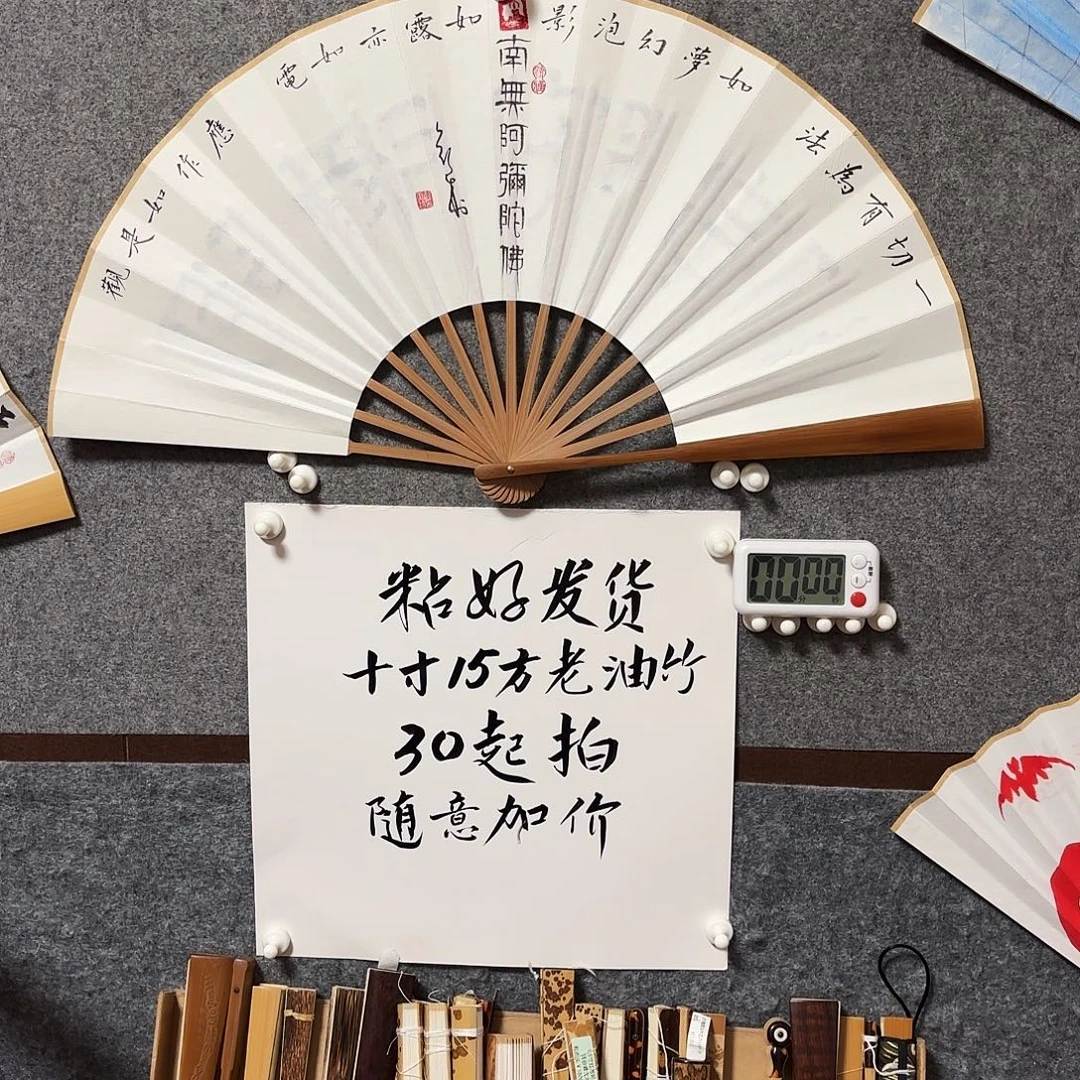 一切有為法
如夢幻泡影
如露亦如電
應作如是觀
南無阿彌陀佛
粘好发货
十寸15方老油竹
30起拍
随意加价
00分00秒